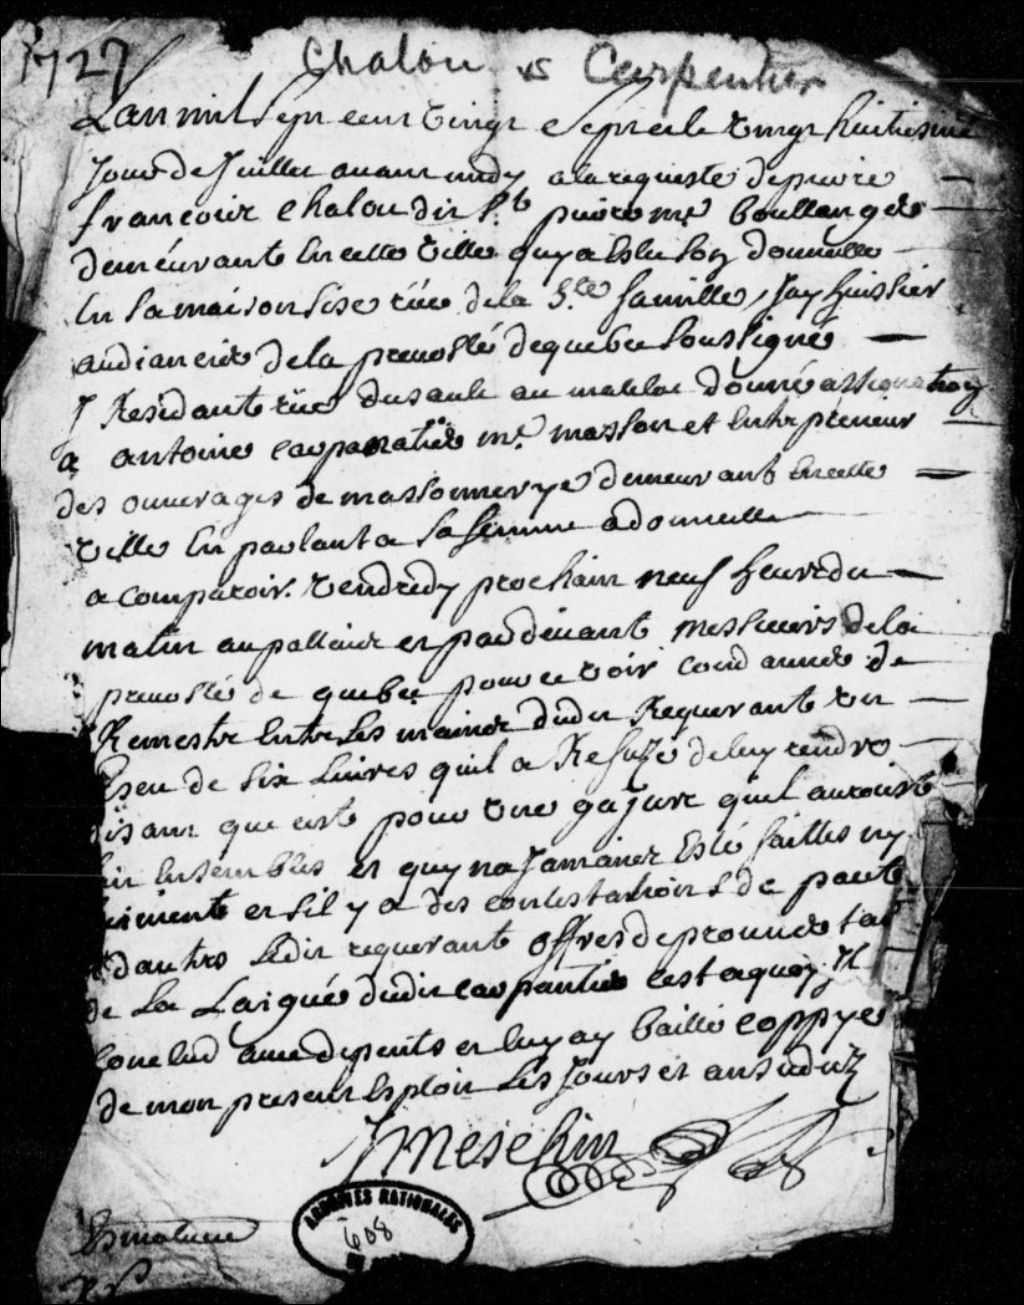 1727
Chalou vs Carpentier
Lan mil sept cent vingt e sept et le vingt huitiesme
Jour de Juillet avant midy a la requeste de pierre
francois chalou dit St pierre me boullanger
demeurante en cette ville quy a eslu son domicille
en sa maison size rüe de la Ste famille, Jay huissier
audiancier de la prevosté de quebec soussigné
J Residante rüe du sault au matelot donné assignation
a antoine carpantier me masson et entrepreneur
des ouvrages de massonnerye demeurant en cette
ville en parlant a sa femme a domicille
a comparoir vendredy prochain neuf heure du
matin au pallaie et par devant messieurs de la
prevosté de quebec pour ce voir condanner de
Remestre entre les mainer dudit Requerante un
Eseu de six livres quil a Refuzé de luy rendre
disant que cest pour une gajure quil auroist
fait ensembles et quy na Jamaiez esté faittes ny
et sil y a des contestations de parte
dautre ledit requerante offres de prouver
de La dudit carpantier cest aquoy Il
conclud avec depents et luy ay baillé coppye
de mon present exploit les Jours et an susdit
J Meschin
ARCHIVES NATIONALES
608